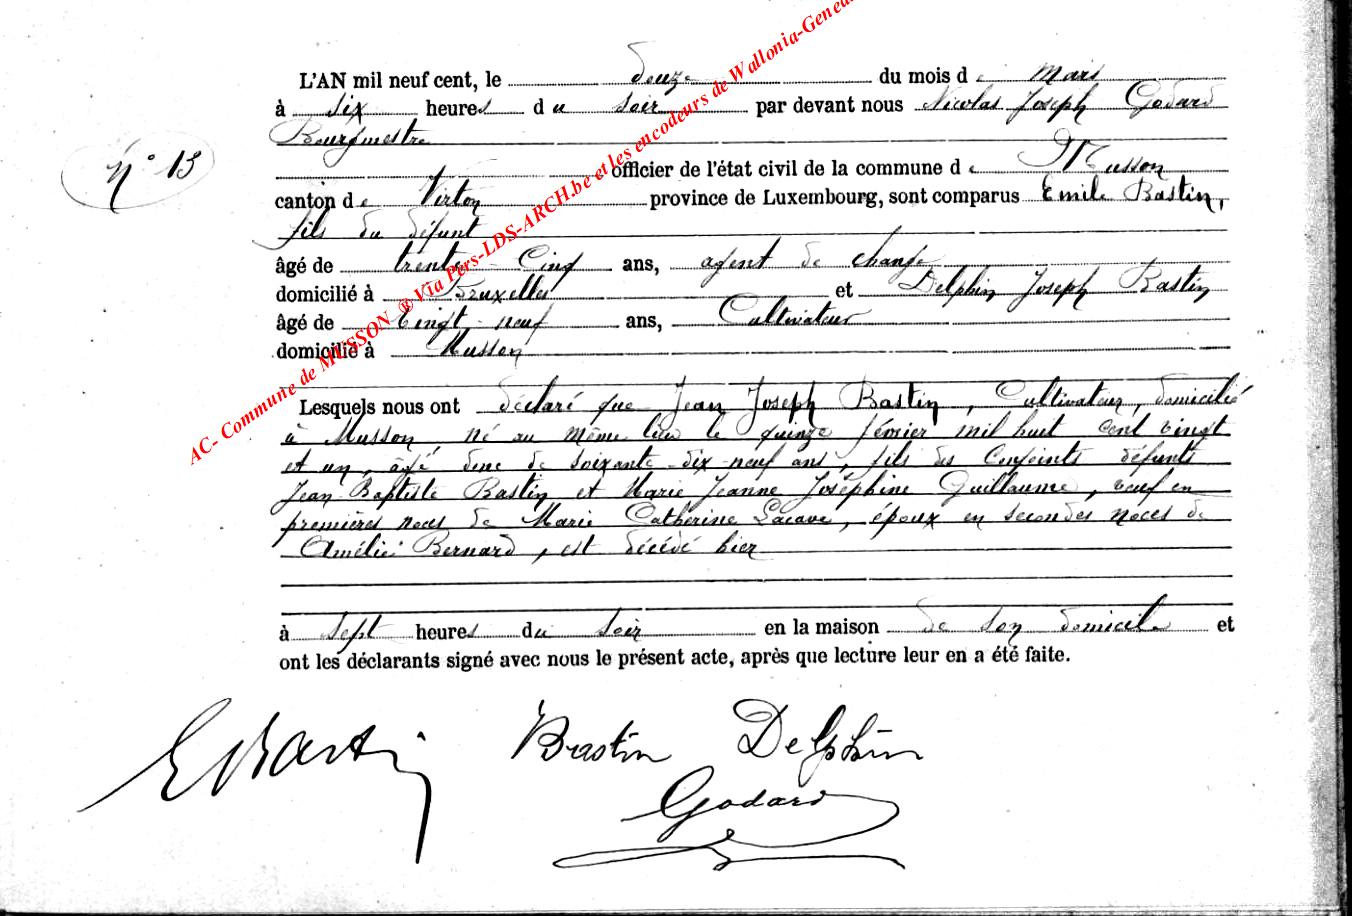 AC- Commune de MUSSON ® Via Pers-LDS-ARCH.be et les encodeurs de Wallonia-Genea
L'AN mil neuf cent, le douze du mois de Mars
à six heures du soir par devant nous Nicolas Joseph Godard
Bourgmestre
N° 13
officier de l'état civil de la commune de Musson
canton de Virton province de Luxembourg, sont comparus Emile Bastin,
fils du défunt
âgé de trente-Cinq ans, agent de change
domicilié à Bruxelles et Delphin Joseph Bastin
âgé de Vingt-neuf ans, Cultivateur
domicilié à Musson
Lesquels nous ont déclaré que Jean Joseph Bastin, Cultivateur, domicilié
à Musson, né au même lieu le quinze février mil huit cent vingt
et un, âgé donc de soixante-dix-neuf ans, fils des Conjoints défunts
Jean-Baptiste Bastin et Marie Jeanne Joséphine Guillaume, veuf en
premières noces de Marie Catherine Lacave, époux en secondes noces de
Amélie Bernard, est décédé hier
à sept heures du soir en la maison de son domicile et
ont les déclarants signé avec nous le présent acte, après que lecture leur en a été faite.
E Bastin Bastin Delphin
Godard